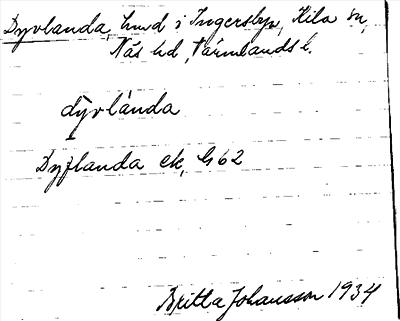 Dyvlanda, hmd i Ingersbyn, Kila sn,
Näs hd, Värmlands l.
dy̅vlànda
Dyflanda ek, G62
Britta Johansson 1934